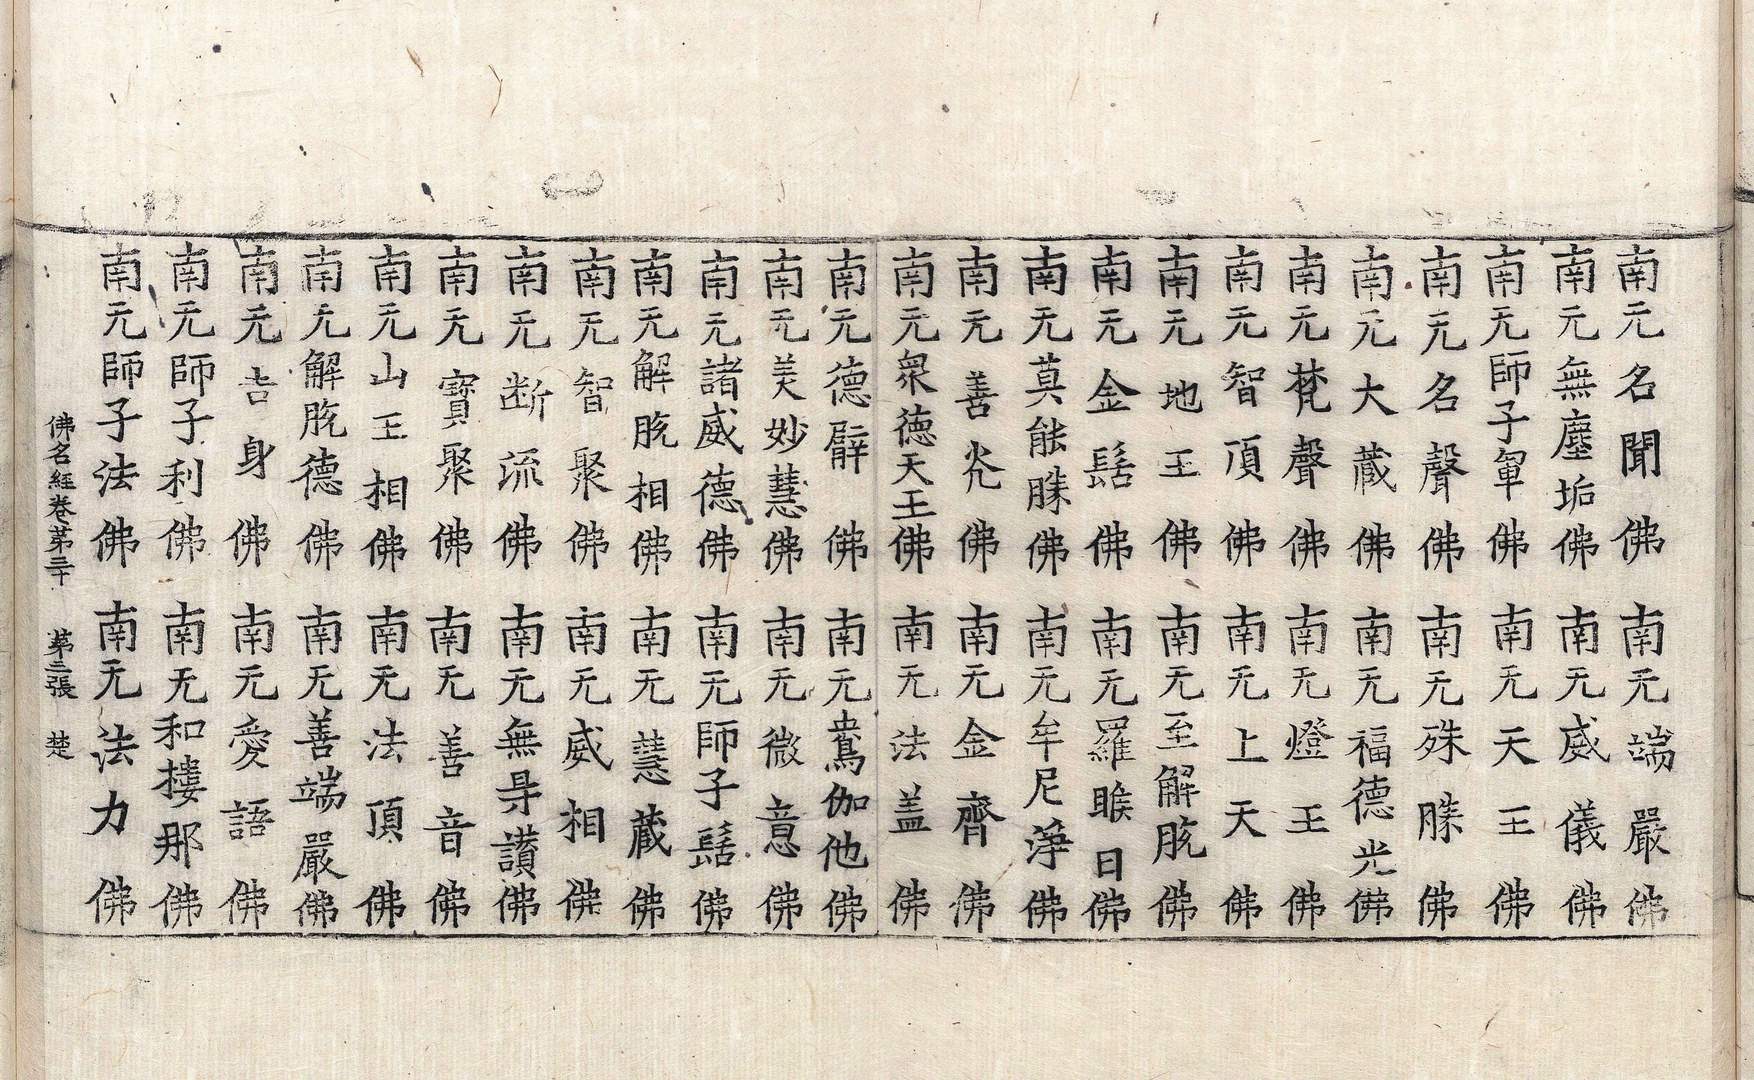 南无名聞佛 南无端嚴佛
南无無塵垢佛 南无威儀佛
南无師子軍佛 南无天王佛
南无名聲佛 南无殊勝佛
南无大藏佛 南无福德光佛
南无梵聲佛 南无燈王佛
南无智頂佛 南无上天佛
南无地王佛 南无至解脫佛
南无金髻佛 南无羅睺日佛
南无莫能勝佛 南无牟尼淨佛
南无善光佛 南无金齊佛
南无衆德天王佛 南无法盖佛
南无德臂佛 南无鴦伽他佛
南无美妙慧佛 南无微意佛
南无諸威德佛 南无師子髻佛
南无解脫相佛 南无慧藏佛
南无智聚佛 南无威相佛
南无断流佛 南无無㝵讃佛
南无寶聚佛 南无善音佛
南无山王相佛 南无法頂佛
南无解脫德佛 南无善端嚴佛
南无吉身佛 南无愛語佛
南无師子利佛 南无和樓那佛
南无師子法佛 南无法力佛
佛名經卷第三十 第二張 楚